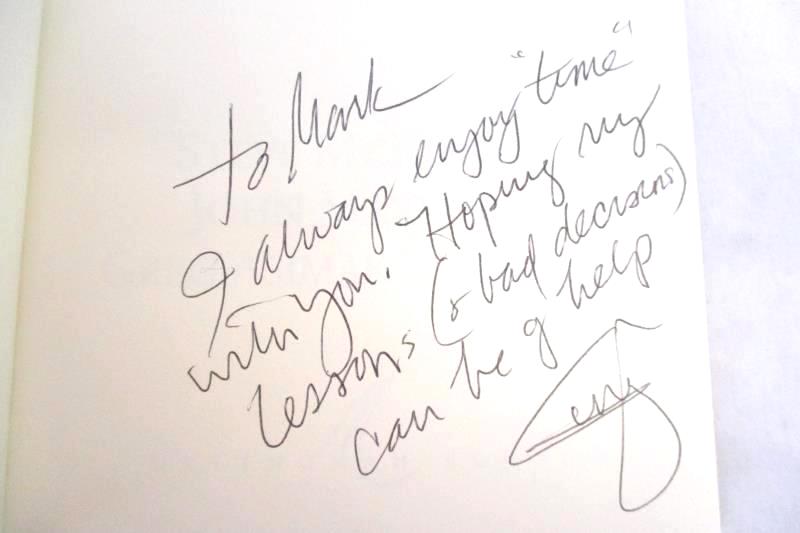 To Mark
I always enjoy "time"
with you. Hoping my
lessons (& bad decisions)
can be of help